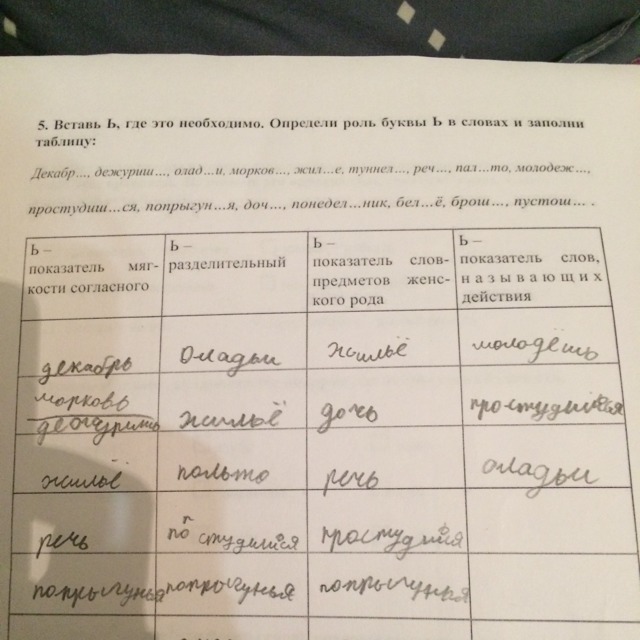 5. Вставь Ь, где это необходимо. Определи роль буквы Ь в словах и заполни
таблицу:
Декабр…, дежуриш…, олад…и, морков…, жил…е, туннел…, реч…, пал…то, молодеж…,
простудиш…ся, попрыгун…я, доч…, понедел…ник, бел…ё, брош…, пустош… .
Ь –
показатель мяг-
кости согласного
Ь –
разделительный
Ь –
показатель слов-
предметов женс-
кого рода
Ь –
показатель слов,
называющих
действия
декабрь
оладьи
жильё
молодёшь
морковь
дежуришь
жильё
дочь
простудишся
жильё
польто
речь
оладьи
речь
простудишся
попрыгунья
попрыгунья
попрыгунья